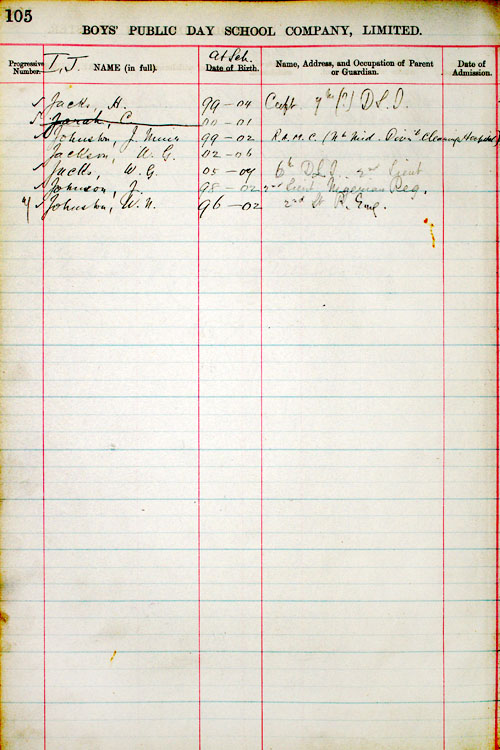 105
BOYS' PUBLIC DAY SCHOOL COMPANY, LIMITED.
Progressive Number. I, J. NAME (in full). At Sch. Date of Birth. Name, Address, and Occupation of Parent or Guardian. Date of Admission.
Jacks, H. 99-04 Capt 7th (?) D L I
Jarah, C. 00-01
Johnston, J. 99-02 R.A.M.C. (Nth Mid. Clearing Hospital)
Jackson, W. G. 02-06
Jacks, W. G. 05-09 6th D.L.I. 2nd Lieut
Johnson, J. 98-02 2nd Lieut, Nigerian Reg.
Johnston, W. N. 96-02 2nd Lt R. Eng.